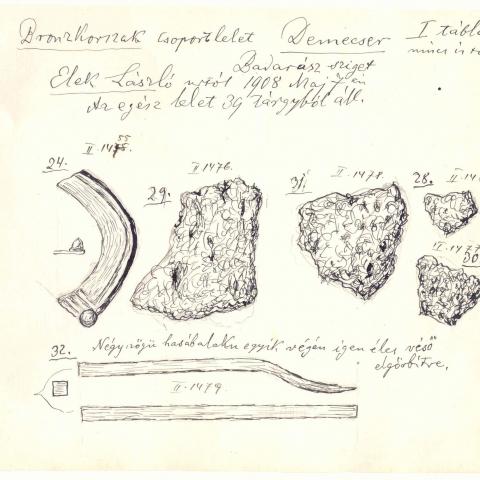 Bronzkorszak csoportlelet Demecser I tábla
Badarász sziget
Elek László úrtól 1908 Maj 7 én
Az egész lelet 39 tárgyból áll.
24.
II. 1455
29.
II. 1476.
31.
II. 1478.
28.
II. 1477
30
32. Négyszögü hasábalaku egyik végén igen éles véső
elgörbitve.
II. 1479.